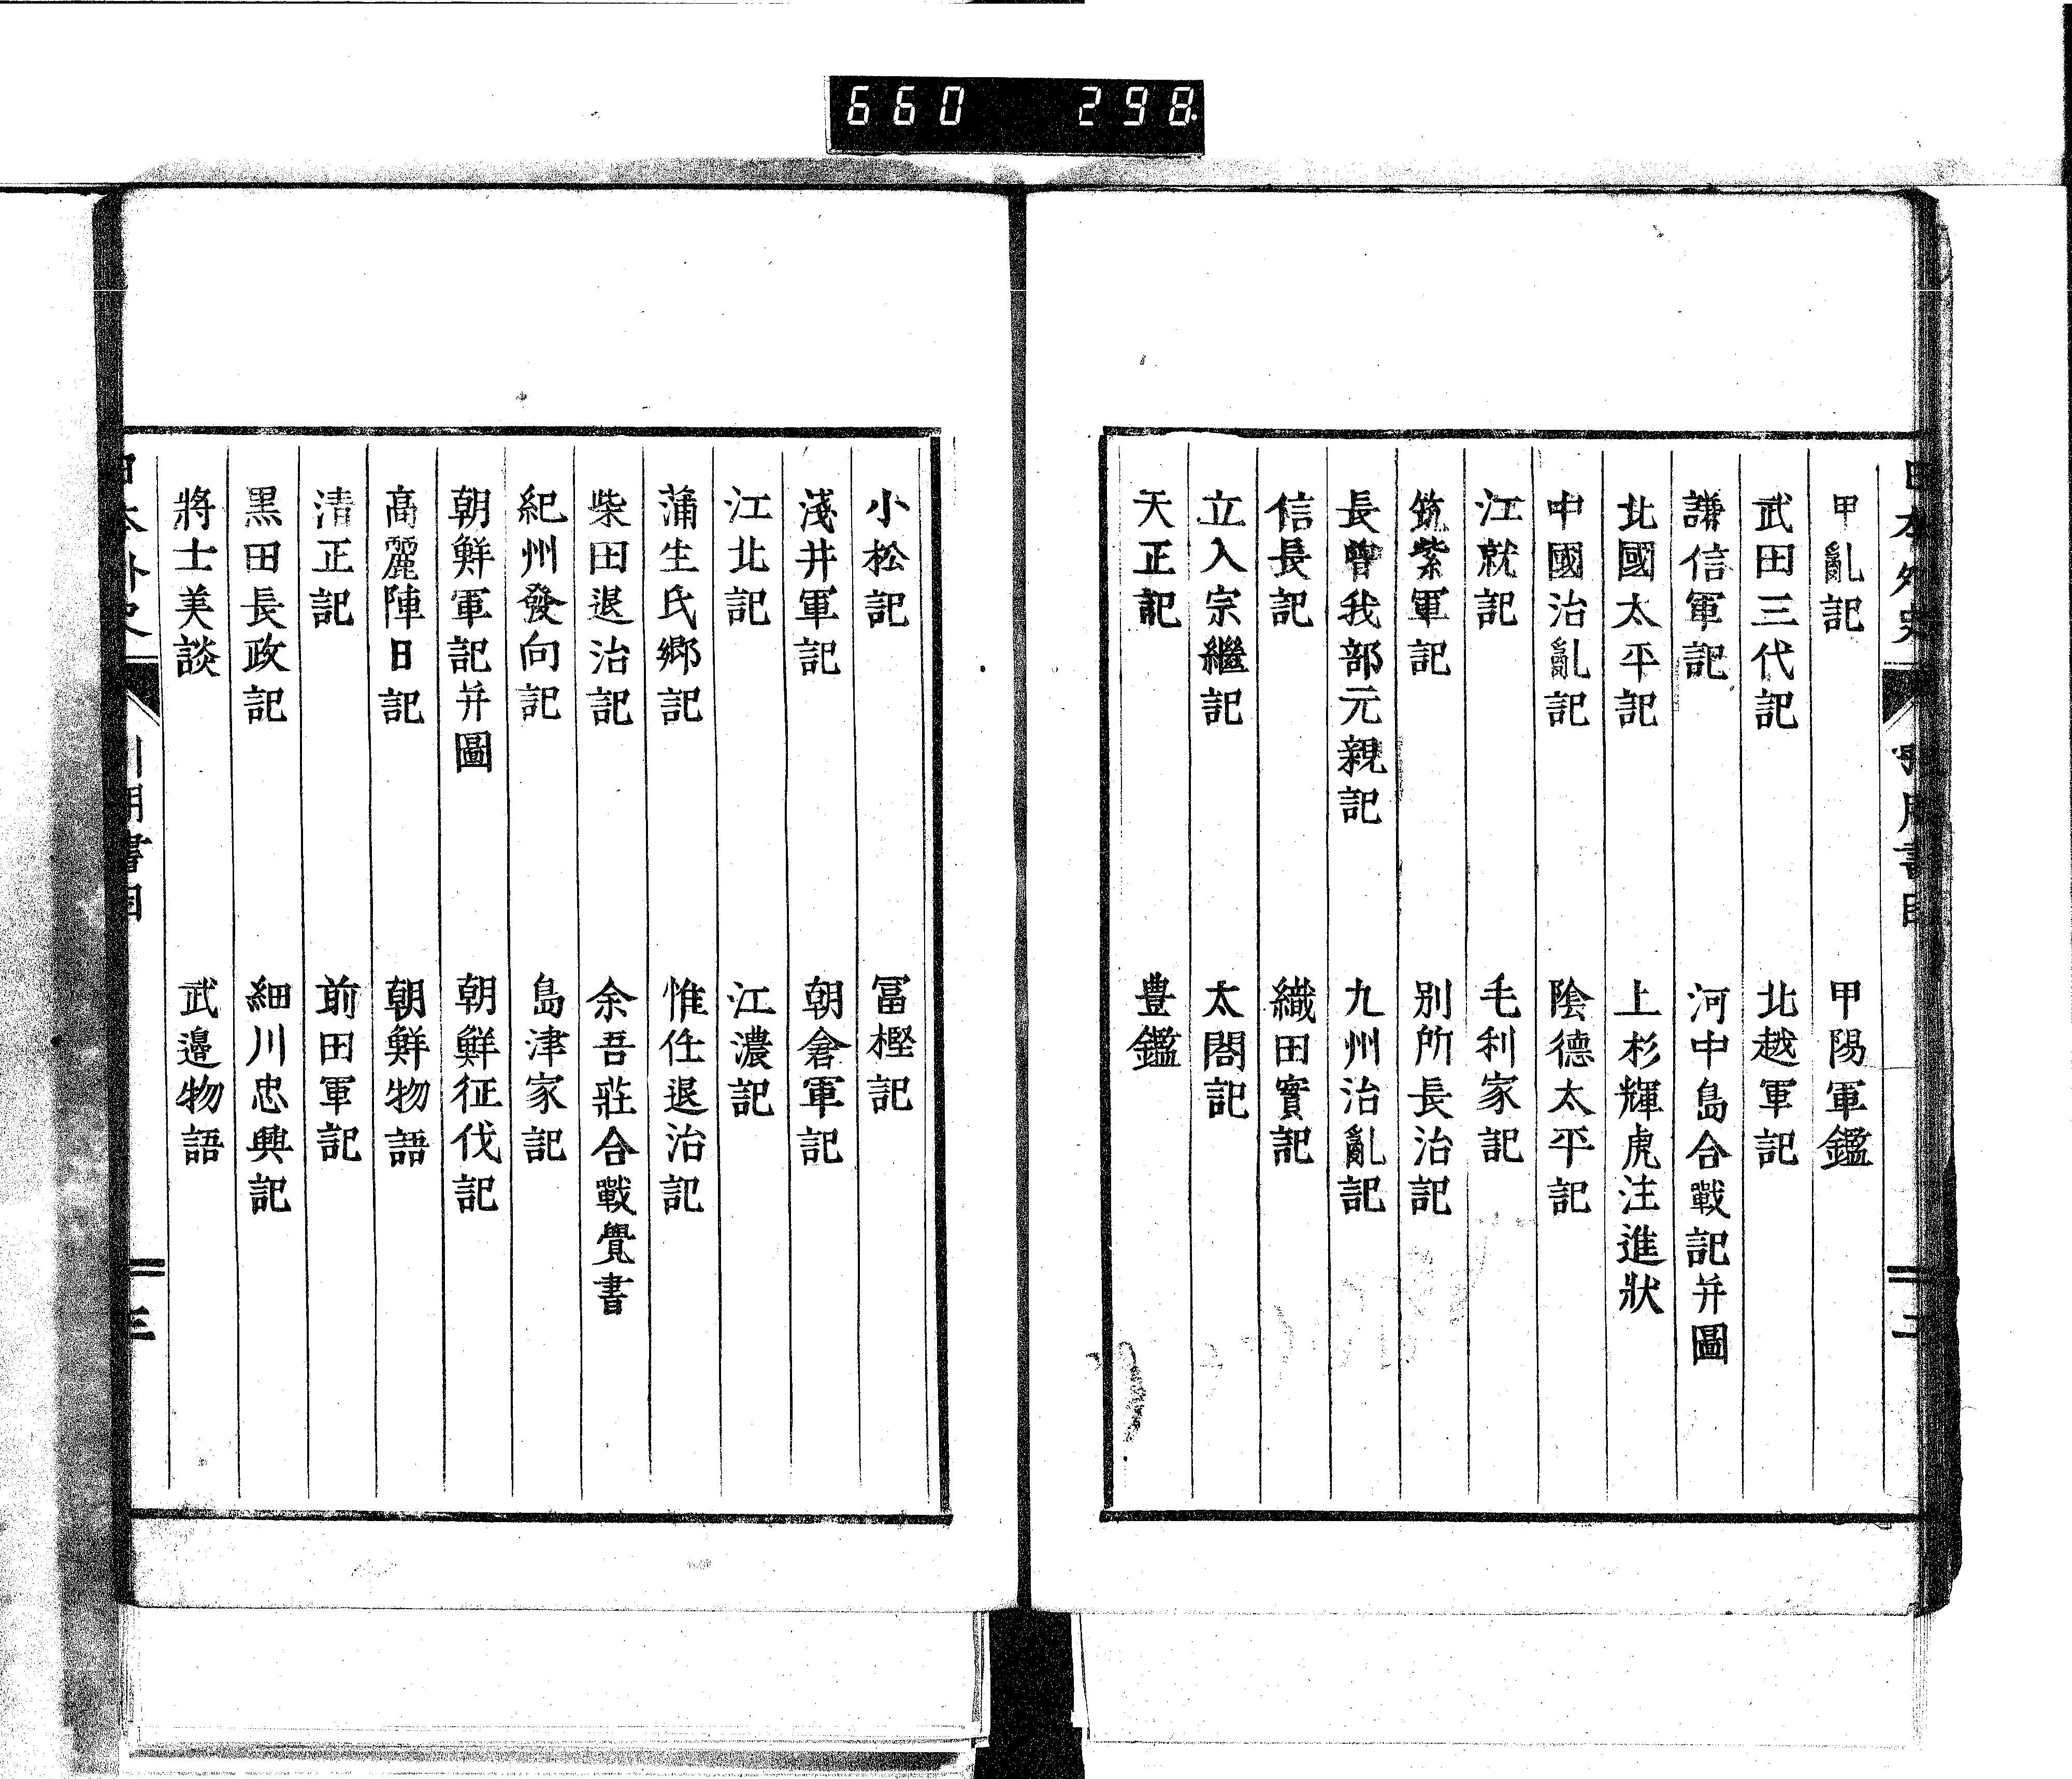 660 298
日本外史 引用書目 二
甲亂記 甲陽軍鑑
武田三代記 北越軍記
謙信軍記 河中島合戰記并圖
北國太平記 上杉輝虎注進狀
中國治亂記 陰德太平記
江就記 毛利家記
筑紫軍記 別所長治記
長曾我部元親記 九州治亂記
信長記 織田實記
立入宗繼記 太閤記
天正記 豊鑑
小松記 冨樫記
淺井軍記 朝倉軍記
江北記 江濃記
蒲生氏鄉記 惟任退治記
柴田退治記 余吾莊合戰覺書
紀州發向記 島津家記
朝鮮軍記并圖 朝鮮征伐記
高麗陣日記 朝鮮物語
清正記 前田軍記
黒田長政記 細川忠興記
將士美談 武邊物語
日本外史 引用書目 三